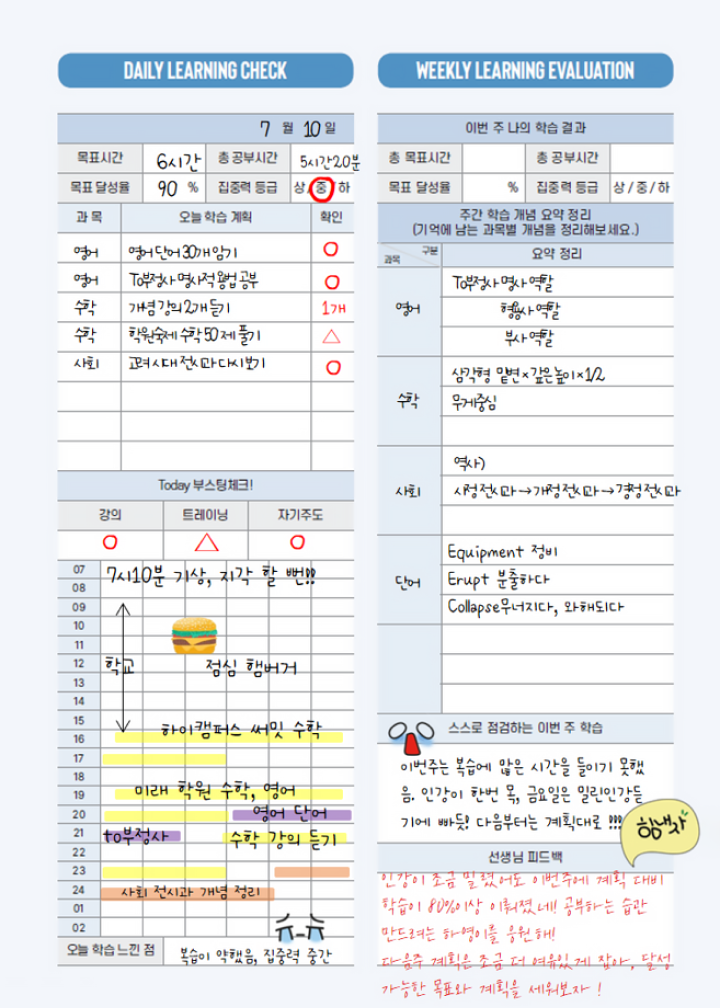 DAILY LEARNING CHECK
7 월 10 일
목표시간 6시간 총 공부시간 5시간20분
목표 달성율 90 % 집중력 등급 상/중/하
과 목 오늘 학습 계획 확인
영어 영어단어 30개 암기 O
영어 To부정사 명사적 용법 공부 O
수학 개념 강의 2개 듣기 1개
수학 학원숙제 수학 50제 풀기 △
사회 고려시대 전시과 다시보기 O
Today 부스팅체크!
강의 트레이닝 자기주도
O △ O
07 7시10분 기상, 지각 할 뻔!!
08
09
10
11
12 학교 점심 햄버거
13
14
15 하이캠퍼스 써밋 수학
16
17
18
19 미래 학원 수학, 영어
20 영어 단어
21 to부정사 수학 강의 듣기
22
23
24 사회 전시과 개념 정리
01
02 ㅠ-ㅠ
오늘 학습 느낀 점 복습이 약했음, 집중력 중간
WEEKLY LEARNING EVALUATION
이번 주 나의 학습 결과
총 목표시간 총 공부시간
목표 달성율 % 집중력 등급 상/중/하
주간 학습 개념 요약 정리
(기억에 남는 과목별 개념을 정리해보세요.)
과목 구분 요약 정리
영어 To부정사 명사 역할
형용사 역할
부사 역할
수학 삼각형 밑변×같은높이×1/2
무게중심
사회 역사)
시정전시과→개정전시과→경정전시과
단어 Equipment 정비
Erupt 분출하다
Collapse무너지다, 와해되다
스스로 점검하는 이번 주 학습
이번주는 복습에 많은 시간을 들이기 못했
음. 인강이 한번 목, 금요일은 밀린인강듣
기에 빠듯! 다음부터는 계획대로 !!!
힘내자
선생님 피드백
인강이 조금 밀렸어도 이번주에 계획 대비
학습이 80%이상 이뤄졌네! 공부하는 습관
만드려는 하영이를 응원해!
다음주 계획은 조금 더 여유있게 잡아, 달성
가능한 목표와 계획을 세워보자 !